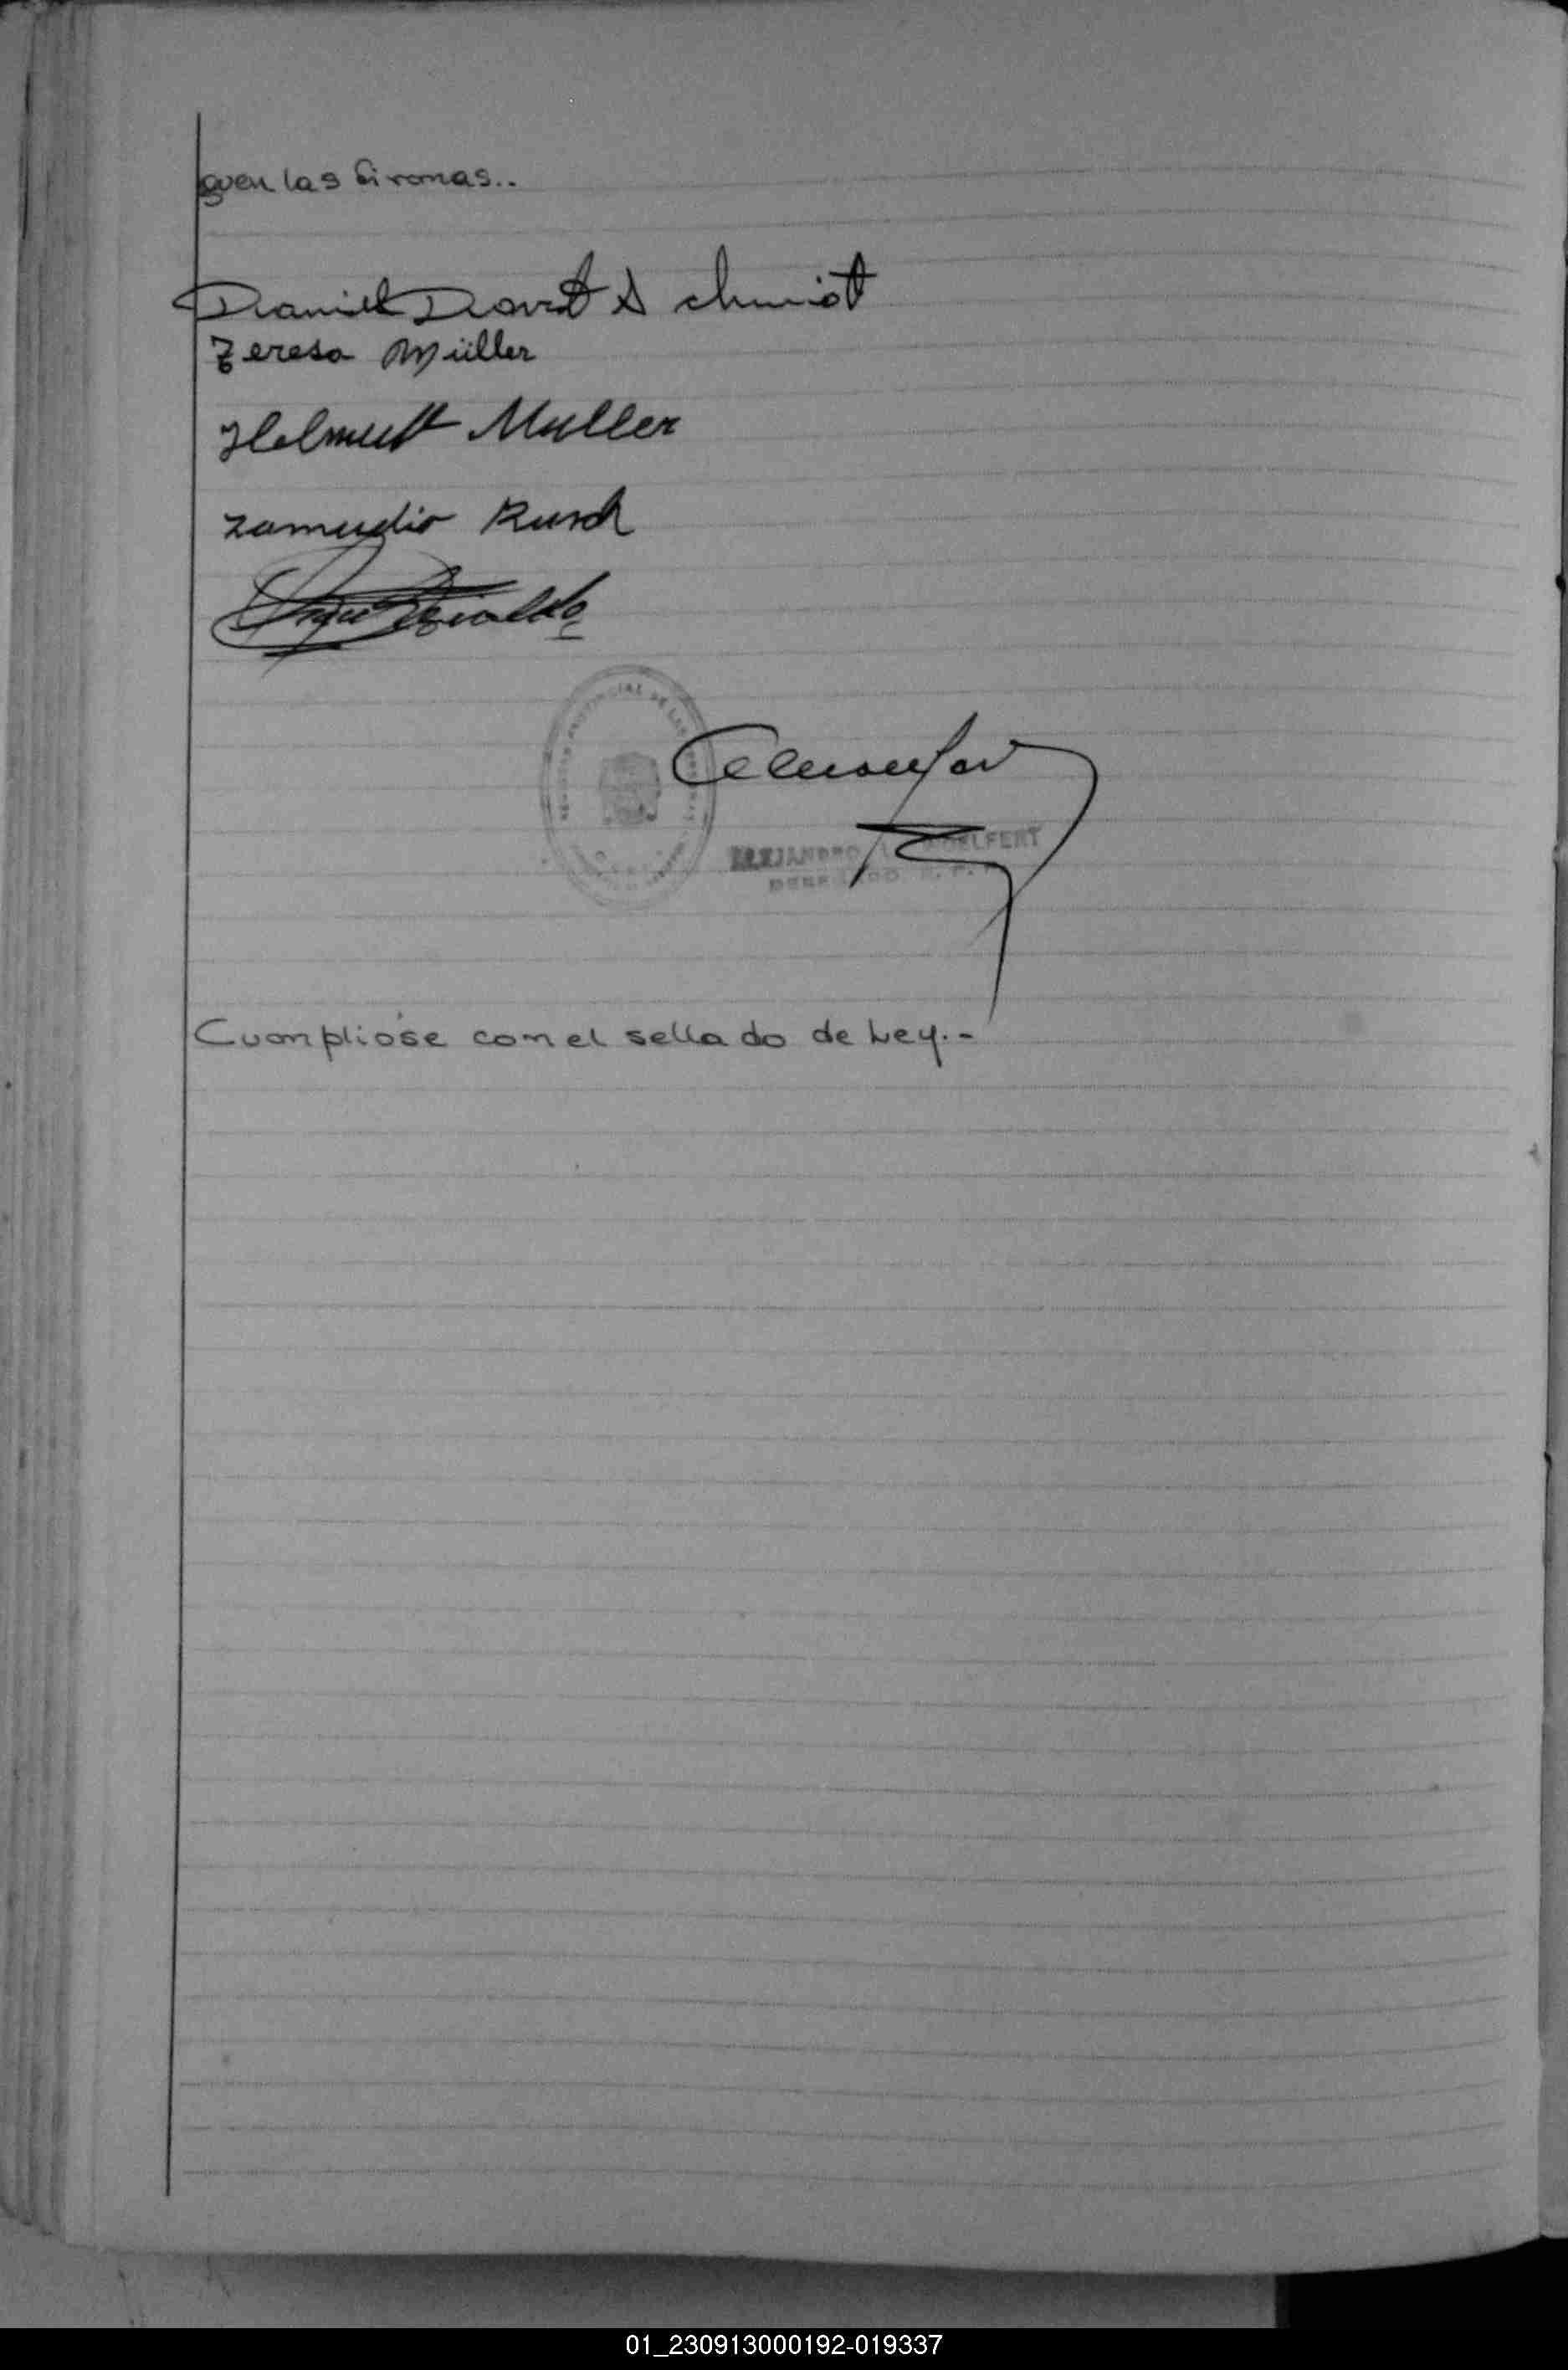 guen las firmas..
Daniel David Schmidt
Teresa Müller
Helmutt Muller
Zamudio Rusch
PROVINCIAL DE LAS
ALEJANDRO
Cumplióse con el sellado de Ley.-
01_230913000192-019337